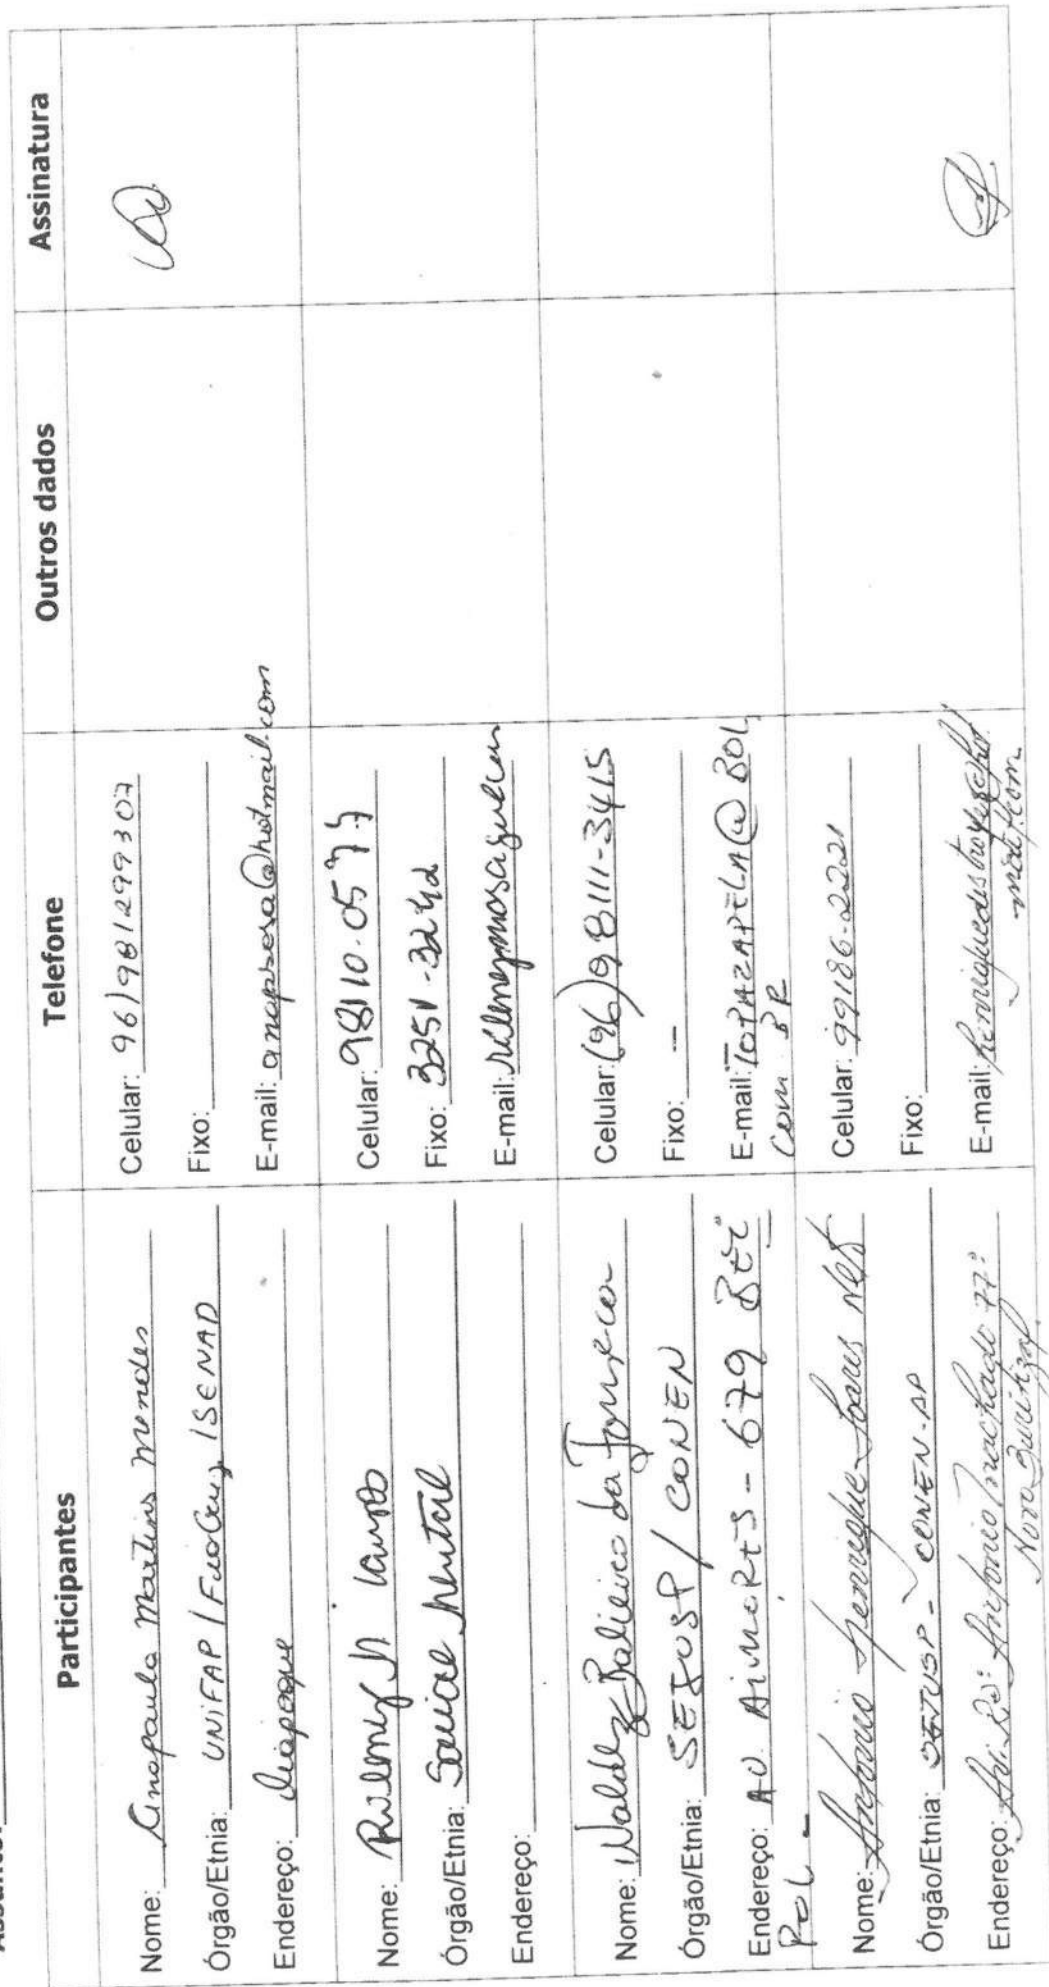 Participantes
Telefone
Outros dados
Assinatura
Nome: Anapaula Martins Mendes
Órgão/Etnia: UNIFAP / Fiocruz / SENAD
Endereço: Oiapoque
Celular: 96) 981299307
Fixo:
E-mail: @hotmail.com
Nome:
Órgão/Etnia: Saúde Mental
Endereço:
Celular: 98110-0577
Fixo: 3251-3242
E-mail:
Nome: Waldez Balieiro da Fonseca
Órgão/Etnia: SEJUSP / CONEN
Endereço: AV. AIMORÉS - 679
Celular: (96) 98111-3415
Fixo: —
E-mail: @BOL
COM. BR
Nome: Antonio Henrique Soares Neto
Órgão/Etnia: SEJUSP - CONEN-AP
Endereço: Antonio Machado 77:
Novo Buritizal
Celular: 99186-2221
Fixo:
E-mail: